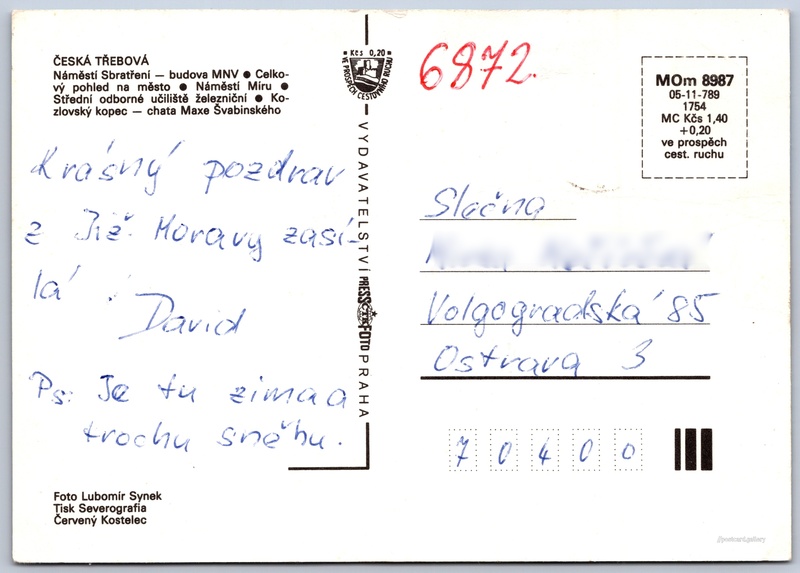 ČESKÁ TŘEBOVÁ
Náměstí Sbratření — budova MNV ● Celko-
vý pohled na město ● Náměstí Míru ●
Střední odborné učiliště železniční ● Ko-
zlovský kopec — chata Maxe Švabinského
Krásný pozdrav
z Již. Moravy zasí-
lá !
David
Ps: Je tu zima a
trochu sněhu.
Foto Lubomír Synek
Tisk Severografia
Červený Kostelec
Kčs 0,20
VE PROSPĚCH CESTOVNÍHO RUCHU
VYDAVATELSTVÍ PRESSFOTO PRAHA
ČTK
6872.
MOm 8987
05-11-789
1754
MC Kčs 1,40
+0,20
ve prospěch
cest. ruchu
Slečna
Volgogradská 85
Ostrava 3
70400
postcard.gallery